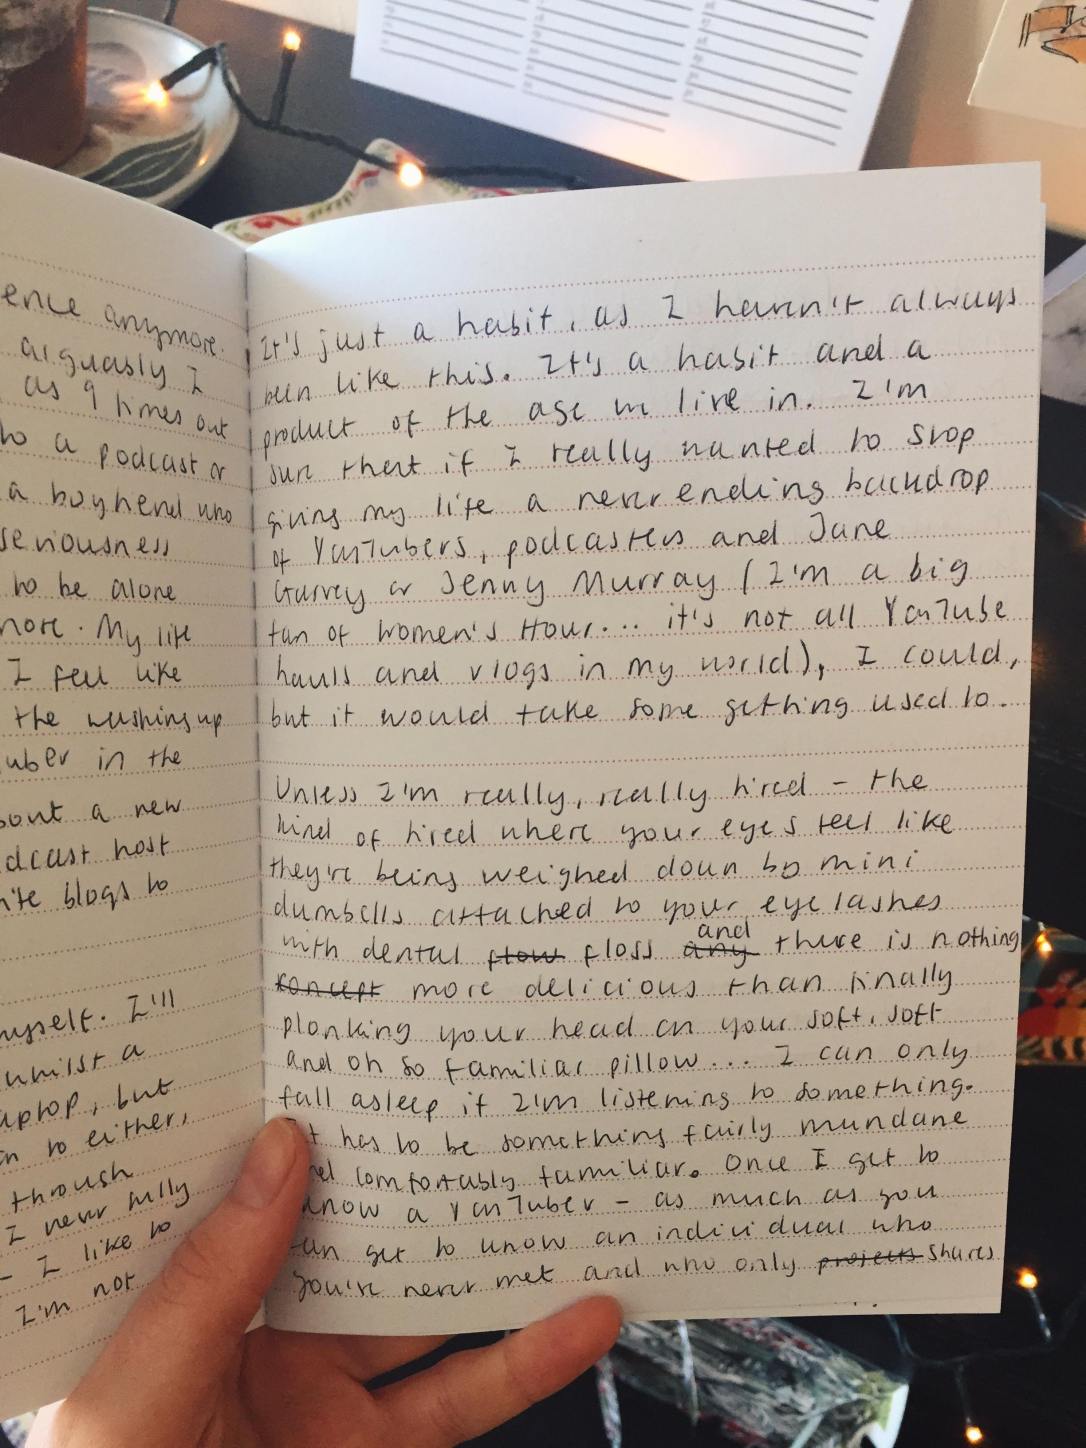 ence anymore.
arguably I
as 9 times out
to a podcast or
a boyfriend who
seriousness
to be alone
more. My life
I feel like
the washing up
uber in the
bout a new
dcast host
ite blogs to
myself. I'll
whilst a
aptop, but
n to either,
through
I never fully
- I like to
I'm not
It's just a habit, as I haven't always
been like this. It's a habit and a
product of the age we live in. I'm
sure that if I really wanted to stop
giving my life a never ending backdrop
of YouTubers, podcasters and Jane
Garvey or Jenny Murray (I'm a big
fan of Women's Hour... it's not all YouTube
hauls and vlogs in my world), I could,
but it would take some getting used to.
Unless I'm really, really tired - the
kind of tired where your eyes feel like
they're being weighed down by mini
dumbells attached to your eyelashes
with dental floss and there is nothing
more delicious than finally
plonking your head on your soft, soft
and oh so familiar pillow... I can only
fall asleep if I'm listening to something.
It has to be something fairly mundane
and comfortably familiar. Once I get to
know a YouTuber - as much as you
can get to know an individual who
you've never met and who only projects shares